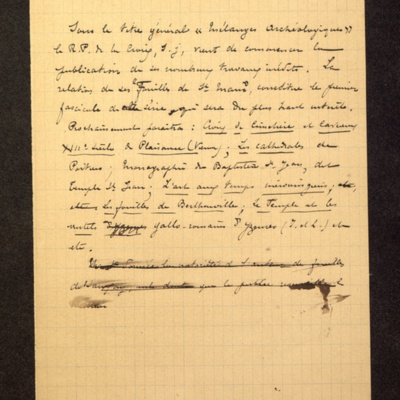 Sous le titre général « Mélanges Archéologiques »
le R.P. de la Croix, S.j., vient de commencer la
publication de ses nombreux travaux inédits. La
relation de ses fouilles de St Maur, constitue le premier
fascicule de cette série, qui sera du plus haut intérêt.
Prochainement paraîtra : Croix de Cimetière et Carreaux
XIIIe siècle de Plaisance (Vienne) ; Les cathédrales de
Poitiers ; Monographie du Baptistère St Jean, dit
temple St Jean ; L'art aux temps mérovingiens ;
les fouilles de Berthouville ; Le Temple et les
gallo-romains d'Yzeures (I. et L.) etc
etc.